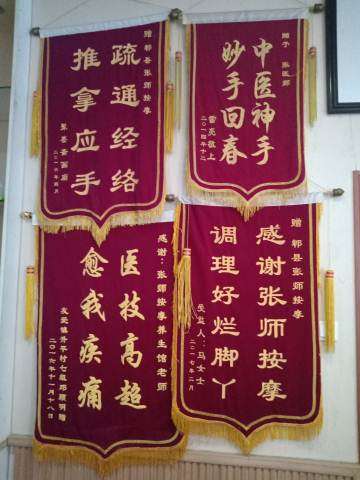 赠 郫县张师按摩
疏通经络
推拿应手
二〇一六年四月
赠予 张医师
中医神手
妙手回春
雷炎敬上
二〇一四年十二
感谢：张师按摩养生馆老师
医技高超
愈我疾痛
友爱镇升平村七组邓顺明赠
二〇一六年十一月十八日
赠 郫县张师按摩
感谢张师按摩
调理好烂脚丫
受益人：马女士
二〇一七年二月